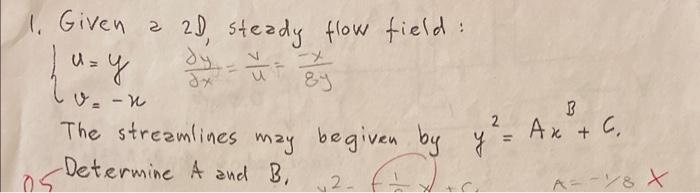 1. Given a 2D, steady flow field:
u = y ∂y/∂x = v/u = -x/8y
v = -x
The streamlines may be given by y² = Ax^B + C.
Determine A and B.
A = -1/8 X